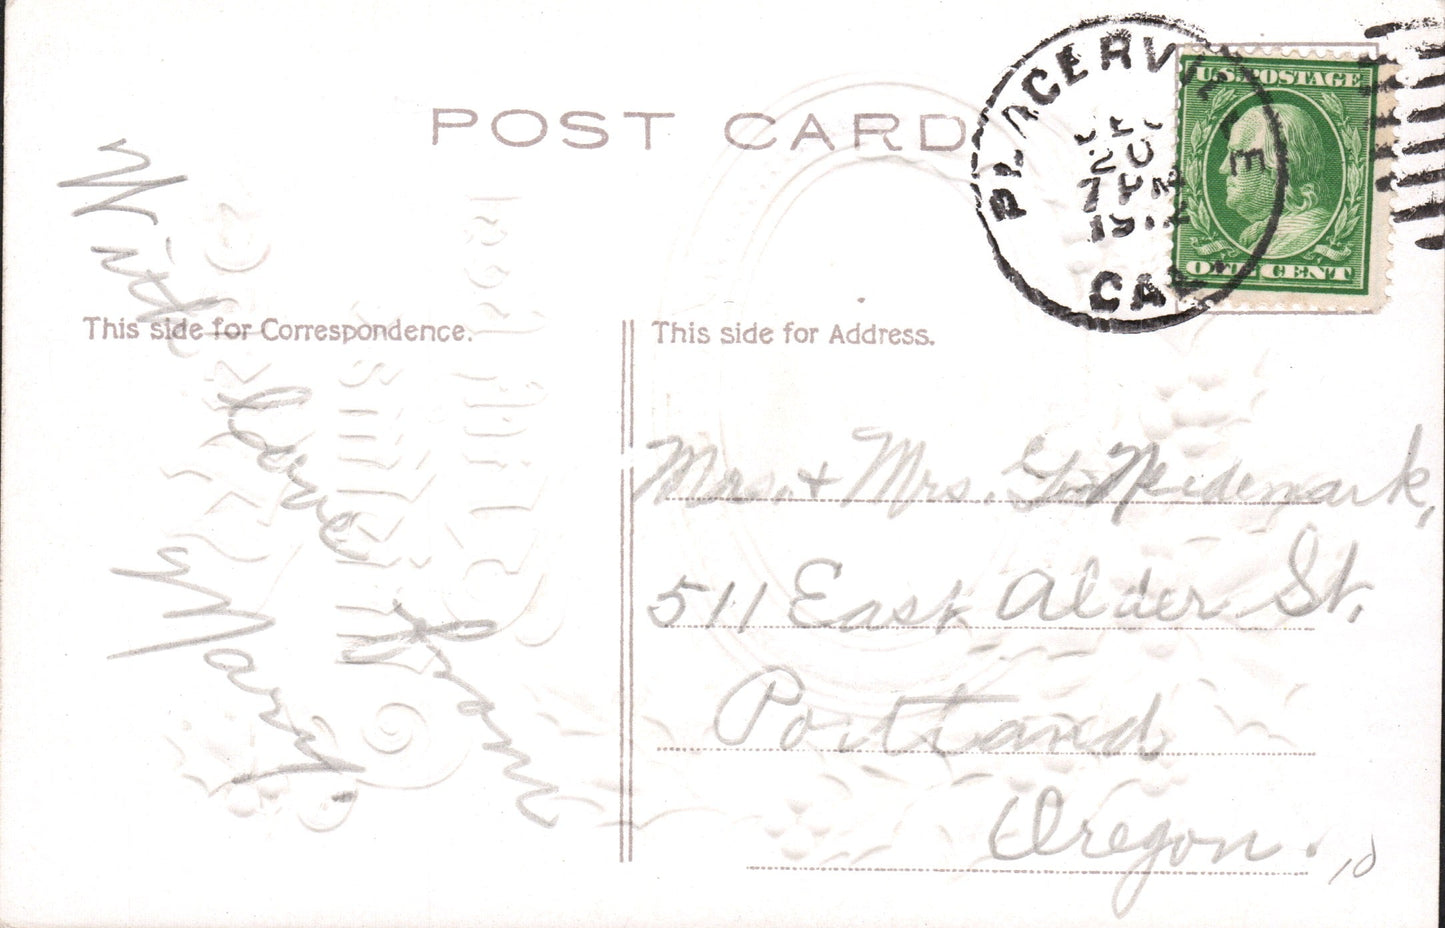 POST CARD
PLACERVILLE
7 P
191
CAL.
U.S. POSTAGE
ONE CENT
This side for Correspondence.
This side for Address.
With
Love from
Mary.
Mrs. + Mrs. G.
511 East Alder St.
Portland
Oregon.
10